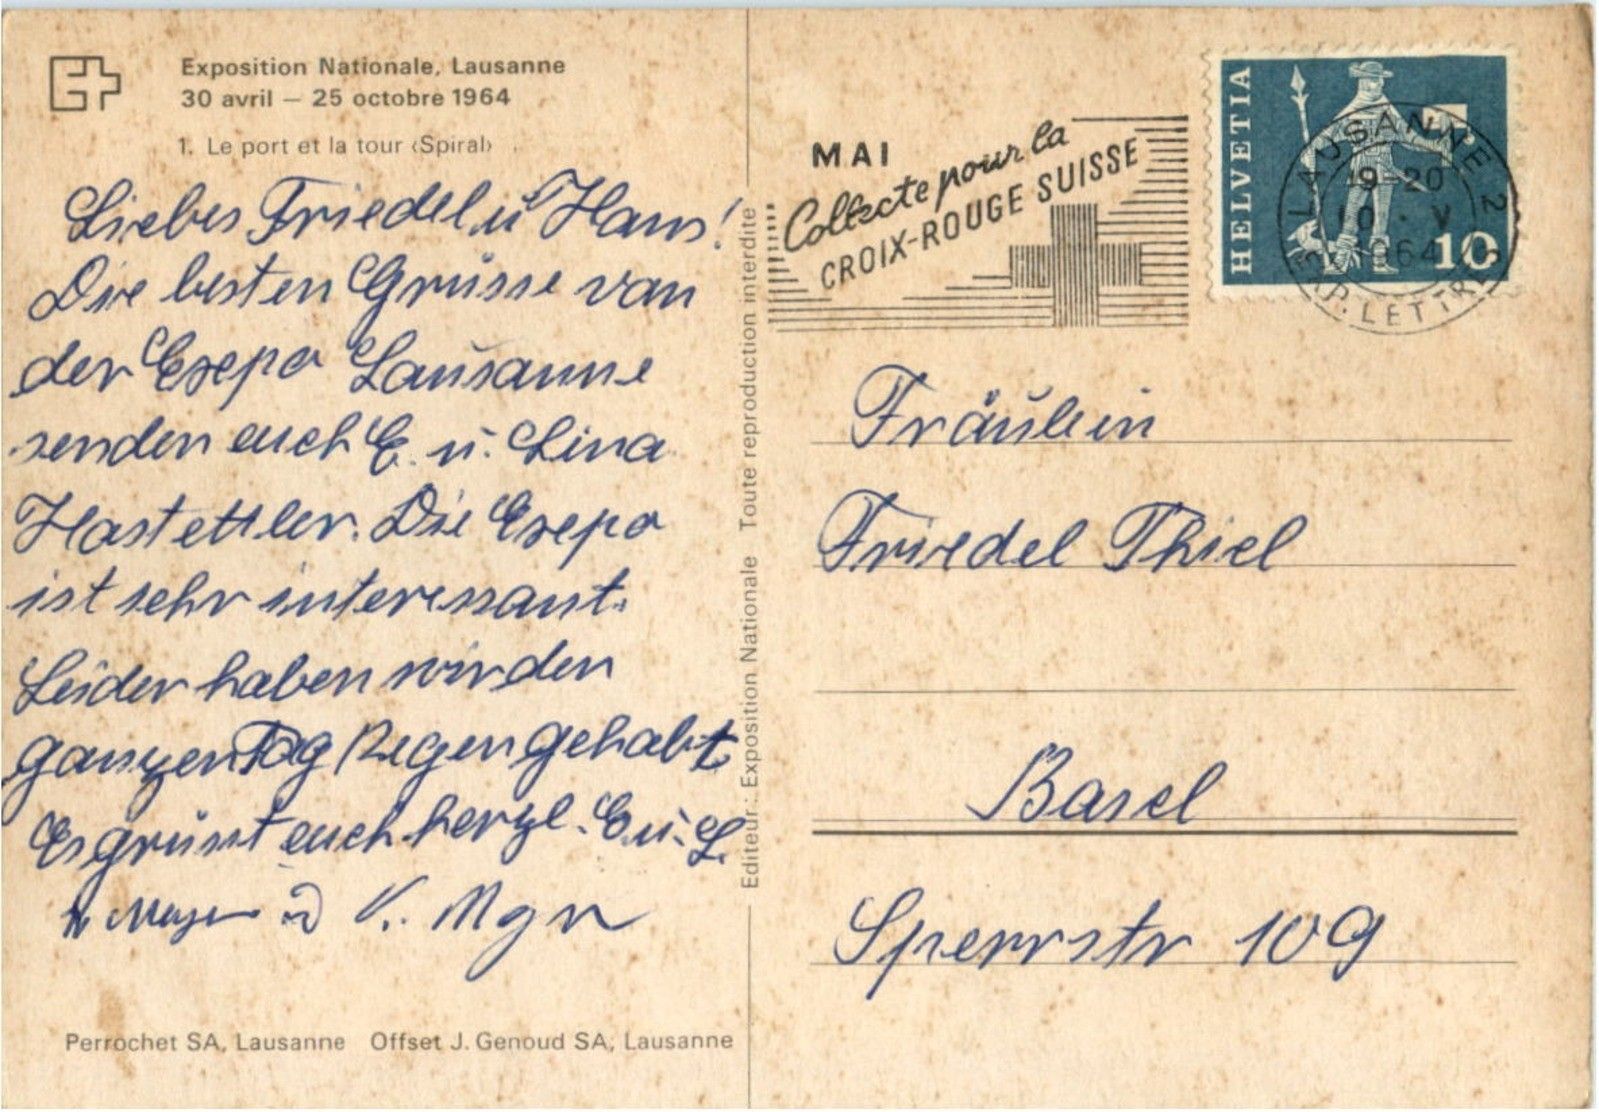 Exposition Nationale, Lausanne
30 avril — 25 octobre 1964
1. Le port et la tour ‹Spiral›
Liebes Friedel u. Hans!
Die besten Grüsse von
der Expo Lausanne
senden euch E. u. Lina
Hostettler. Die Expo
ist sehr interessant.
Leider haben wir den
ganzen Tag Regen gehabt
Es grüsst euch herzl. E. u. L.
Editeur: Exposition Nationale Toute reproduction interdite
Perrochet SA, Lausanne Offset J. Genoud SA, Lausanne
MAI
Collecte pour la
CROIX-ROUGE SUISSE
HELVETIA
10
LAUSANNE 2
19-20
10 · V
1964
EXP. LETTRES
Fräulein
Friedel Thiel
Basel
Sperrstr 109